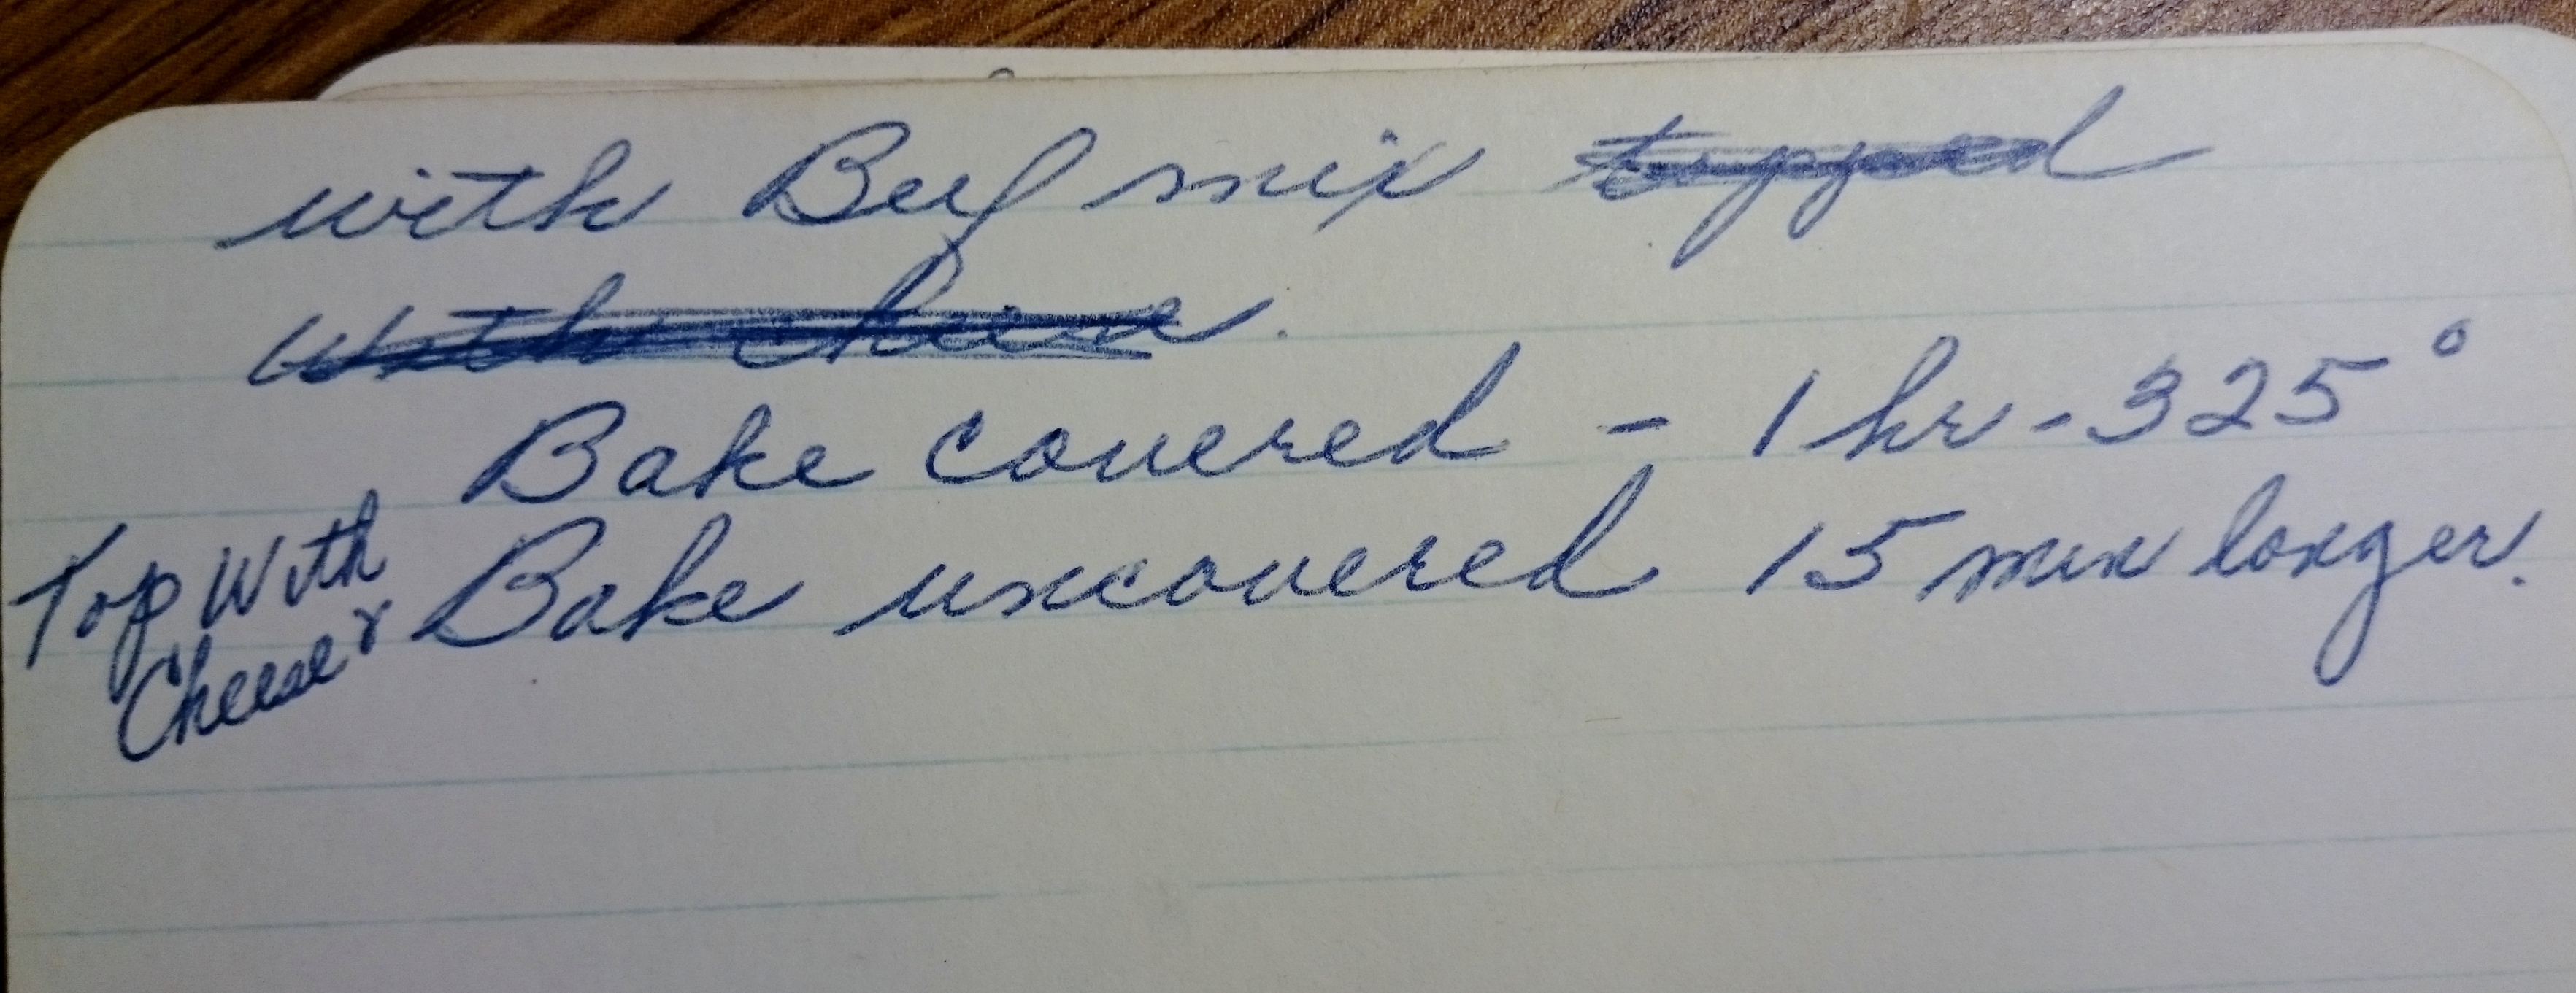 with Beef mix topped
with cheese.
Bake covered - 1 hr - 325°
Top With
Cheese &
Bake uncovered 15 min longer.